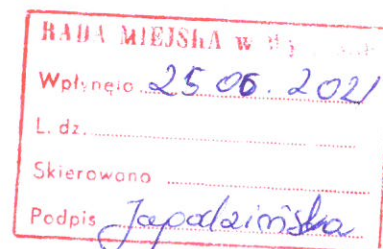 RADA MIEJSKA w
Wpłynęło 25 06. 2021
L. dz.
Skierowano
Podpis